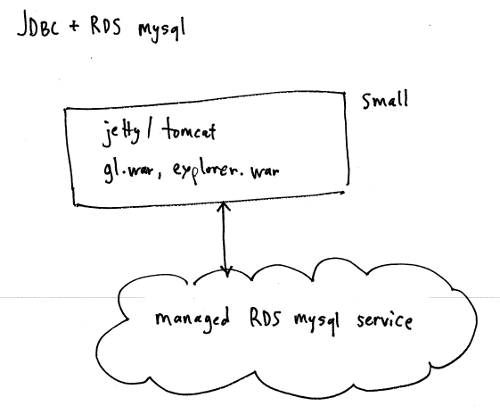 JDBC + RDS mysql
small
jetty / tomcat
gl.war, explorer.war
managed RDS mysql service